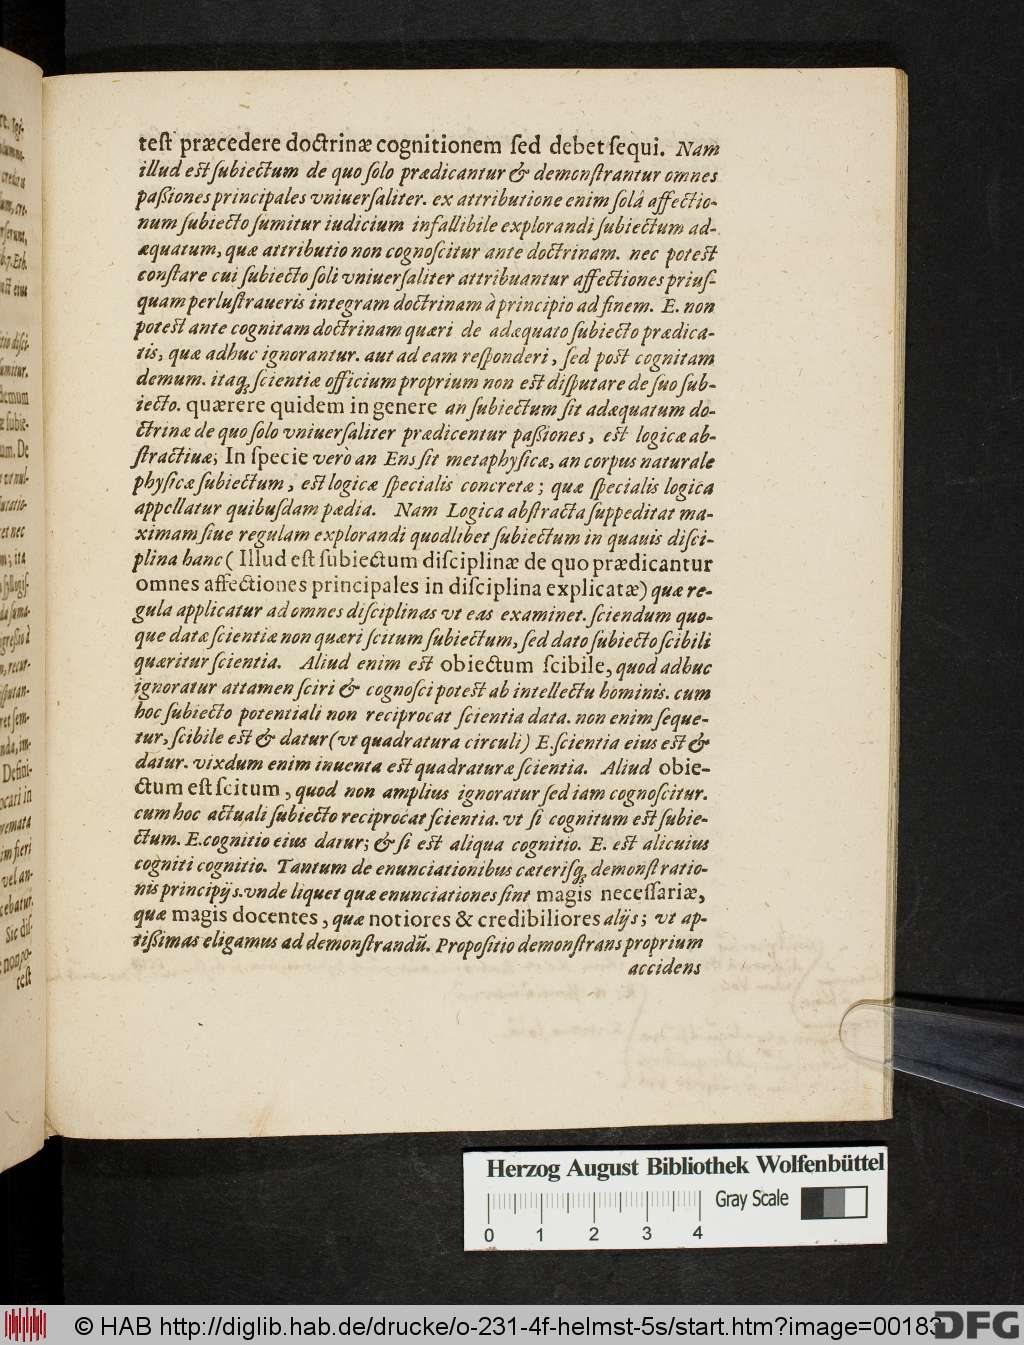 test præcedere doctrinæ cognitionem sed debet sequi. Nam
illud est subiectum de quo solo prædicantur & demonstrantur omnes
passiones principales vniuersaliter. ex attributione enim solâ affectio-
num subiecto sumitur iudicium infallibile explorandi subiectum ad-
æquatum, quæ attributio non cognoscitur ante doctrinam. nec potest
constare cui subiecto soli vniuersaliter attribuantur affectiones prius-
quam perlustraueris integram doctrinam à principio ad finem. E. non
potest ante cognitam doctrinam quæri de adæquato subiecto prædica-
tis, quæ adhuc ignorantur. aut ad eam responderi, sed post cognitam
demum. itaq; scientiæ officium proprium non est disputare de suo sub-
iecto. quærere quidem in genere an subiectum sit adæquatum do-
ctrinæ de quo solo vniuersaliter prædicentur passiones, est logicæ ab-
stractiuæ; In specie verò an Ens sit metaphysicæ, an corpus naturale
physicæ subiectum, est logicæ specialis concretæ; quæ specialis logica
appellatur quibusdam pædia. Nam Logica abstracta suppeditat ma-
ximam siue regulam explorandi quodlibet subiectum in quauis disci-
plina hanc ( Illud est subiectum disciplinæ de quo prædicantur
omnes affectiones principales in disciplina explicatæ) quæ re-
gula applicatur ad omnes disciplinas vt eas examinet. sciendum quo-
que datæ scientiæ non quæri scitum subiectum, sed dato subiecto scibili
quæritur scientia. Aliud enim est obiectum scibile, quod adhuc
ignoratur attamen sciri & cognosci potest ab intellectu hominis. cum
hoc subiecto potentiali non reciprocat scientia data. non enim seque-
tur, scibile est & datur (vt quadratura circuli) E. scientia eius est &
datur. vixdum enim inuenta est quadraturæ scientia. Aliud obie-
ctum est scitum, quod non amplius ignoratur sed iam cognoscitur.
cum hoc actuali subiecto reciprocat scientia. vt si cognitum est subie-
ctum. E. cognitio eius datur; & si est aliqua cognitio. E. est alicuius
cogniti cognitio. Tantum de enunciationibus cæterisq; demonstratio-
nis principijs. vnde liquet quæ enunciationes sint magis necessariæ,
quæ magis docentes, quæ notiores & credibiliores alijs; vt ap-
tissimas eligamus ad demonstrandū. Propositio demonstrans proprium
accidens
Herzog August Bibliothek Wolfenbüttel
Gray Scale
0 1 2 3 4
© HAB http://diglib.hab.de/drucke/o-231-4f-helmst-5s/start.htm?image=00183
DFG